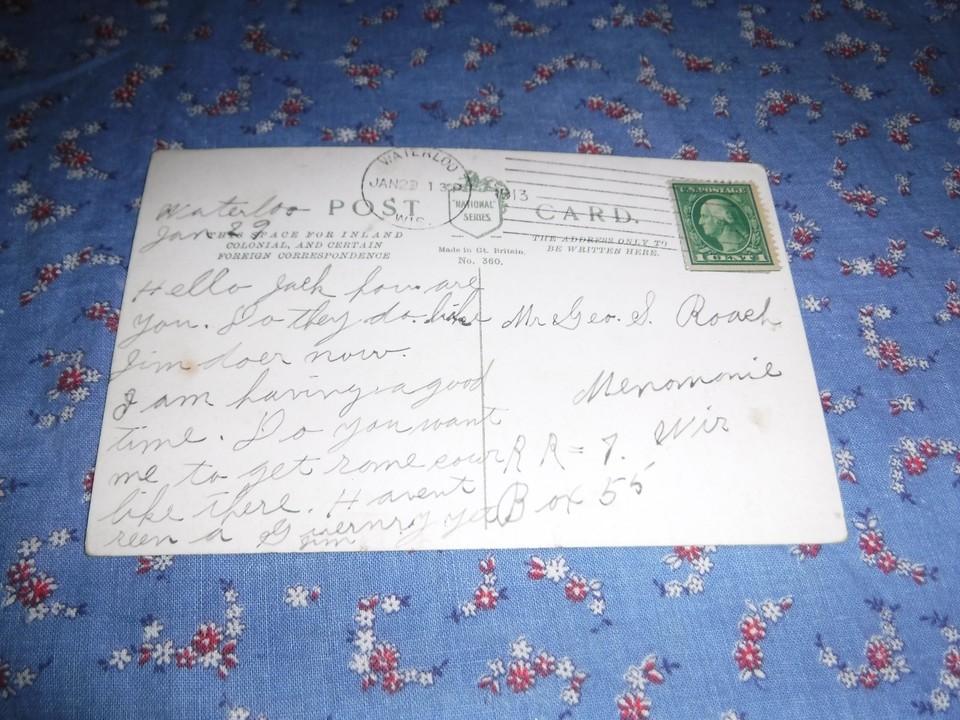 WATERLOO
JAN 29
1913
WIS.
POST CARD.
"NATIONAL"
SERIES
THIS SPACE FOR INLAND
COLONIAL, AND CERTAIN
FOREIGN CORRESPONDENCE
Made in Gt. Britain.
No. 360.
THE ADDRESS ONLY TO
BE WRITTEN HERE.
U.S. POSTAGE
1 CENT 1
Waterloo
Jan 29
Hello Jack how are
you. Do they do like
Jim does now.
I am having a good
time. Do you want
me to get some cows
like there. Havent
seen a Guernsey yet
Jim
Mr Geo. S. Roach
Menomonie
Wis
R R = 7.
Box 55